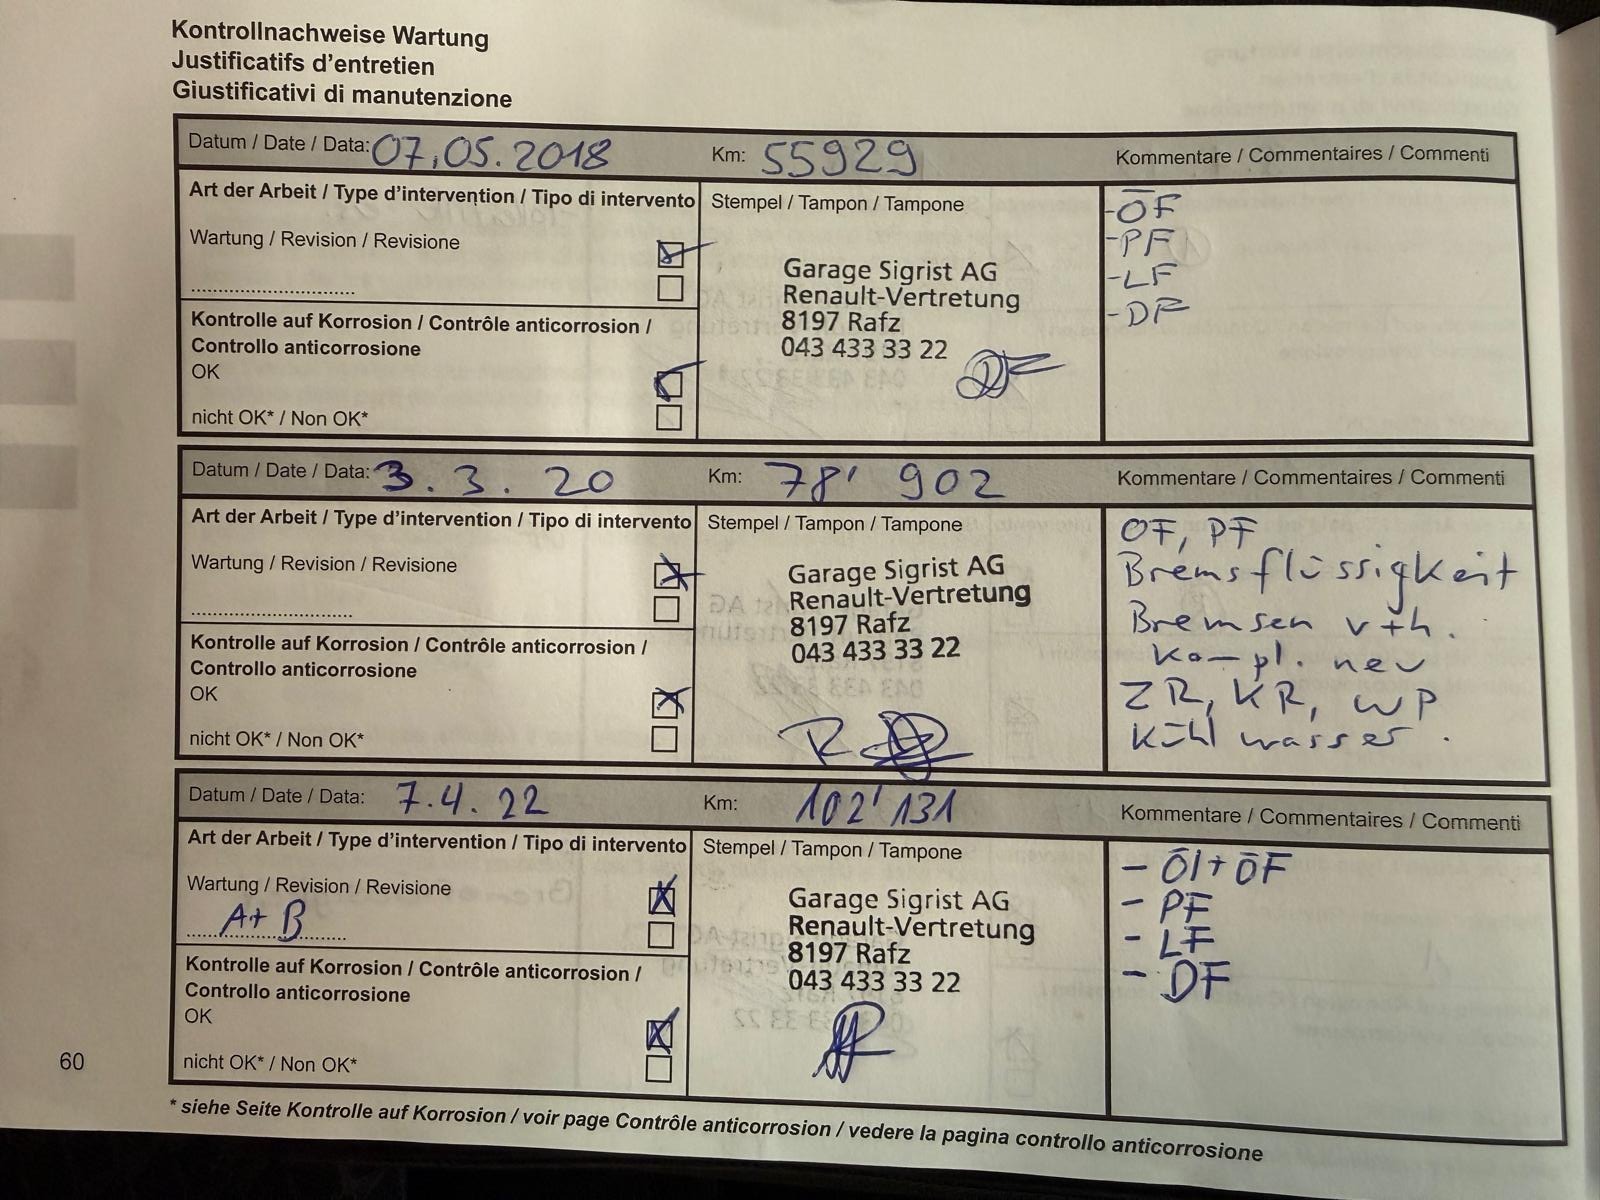 Kontrollnachweise Wartung
Justificatifs d'entretien
Giustificativi di manutenzione
Datum / Date / Data: 07.05.2018 Km: 55929 Kommentare / Commentaires / Commenti
Art der Arbeit / Type d'intervention / Tipo di intervento
Wartung / Revision / Revisione
Kontrolle auf Korrosion / Contrôle anticorrosion /
Controllo anticorrosione
OK
nicht OK* / Non OK*
Stempel / Tampon / Tampone
Garage Sigrist AG
Renault-Vertretung
8197 Rafz
043 433 33 22
-ÖF
-PF
-LF
-DF
Datum / Date / Data: 3. 3. 20 Km: 78' 902 Kommentare / Commentaires / Commenti
Art der Arbeit / Type d'intervention / Tipo di intervento
Wartung / Revision / Revisione
Kontrolle auf Korrosion / Contrôle anticorrosion /
Controllo anticorrosione
OK
nicht OK* / Non OK*
Stempel / Tampon / Tampone
Garage Sigrist AG
Renault-Vertretung
8197 Rafz
043 433 33 22
ÖF, PF
Bremsflüssigkeit
Bremsen v+h.
kompl. neu
ZR, KR, WP
Kühlwasser.
Datum / Date / Data: 7.4.22 Km: 102'131 Kommentare / Commentaires / Commenti
Art der Arbeit / Type d'intervention / Tipo di intervento
Wartung / Revision / Revisione
A+B
Kontrolle auf Korrosion / Contrôle anticorrosion /
Controllo anticorrosione
OK
nicht OK* / Non OK*
Stempel / Tampon / Tampone
Garage Sigrist AG
Renault-Vertretung
8197 Rafz
043 433 33 22
- Öl+ÖF
- PF
- LF
- DF
60
* siehe Seite Kontrolle auf Korrosion / voir page Contrôle anticorrosion / vedere la pagina controllo anticorrosione